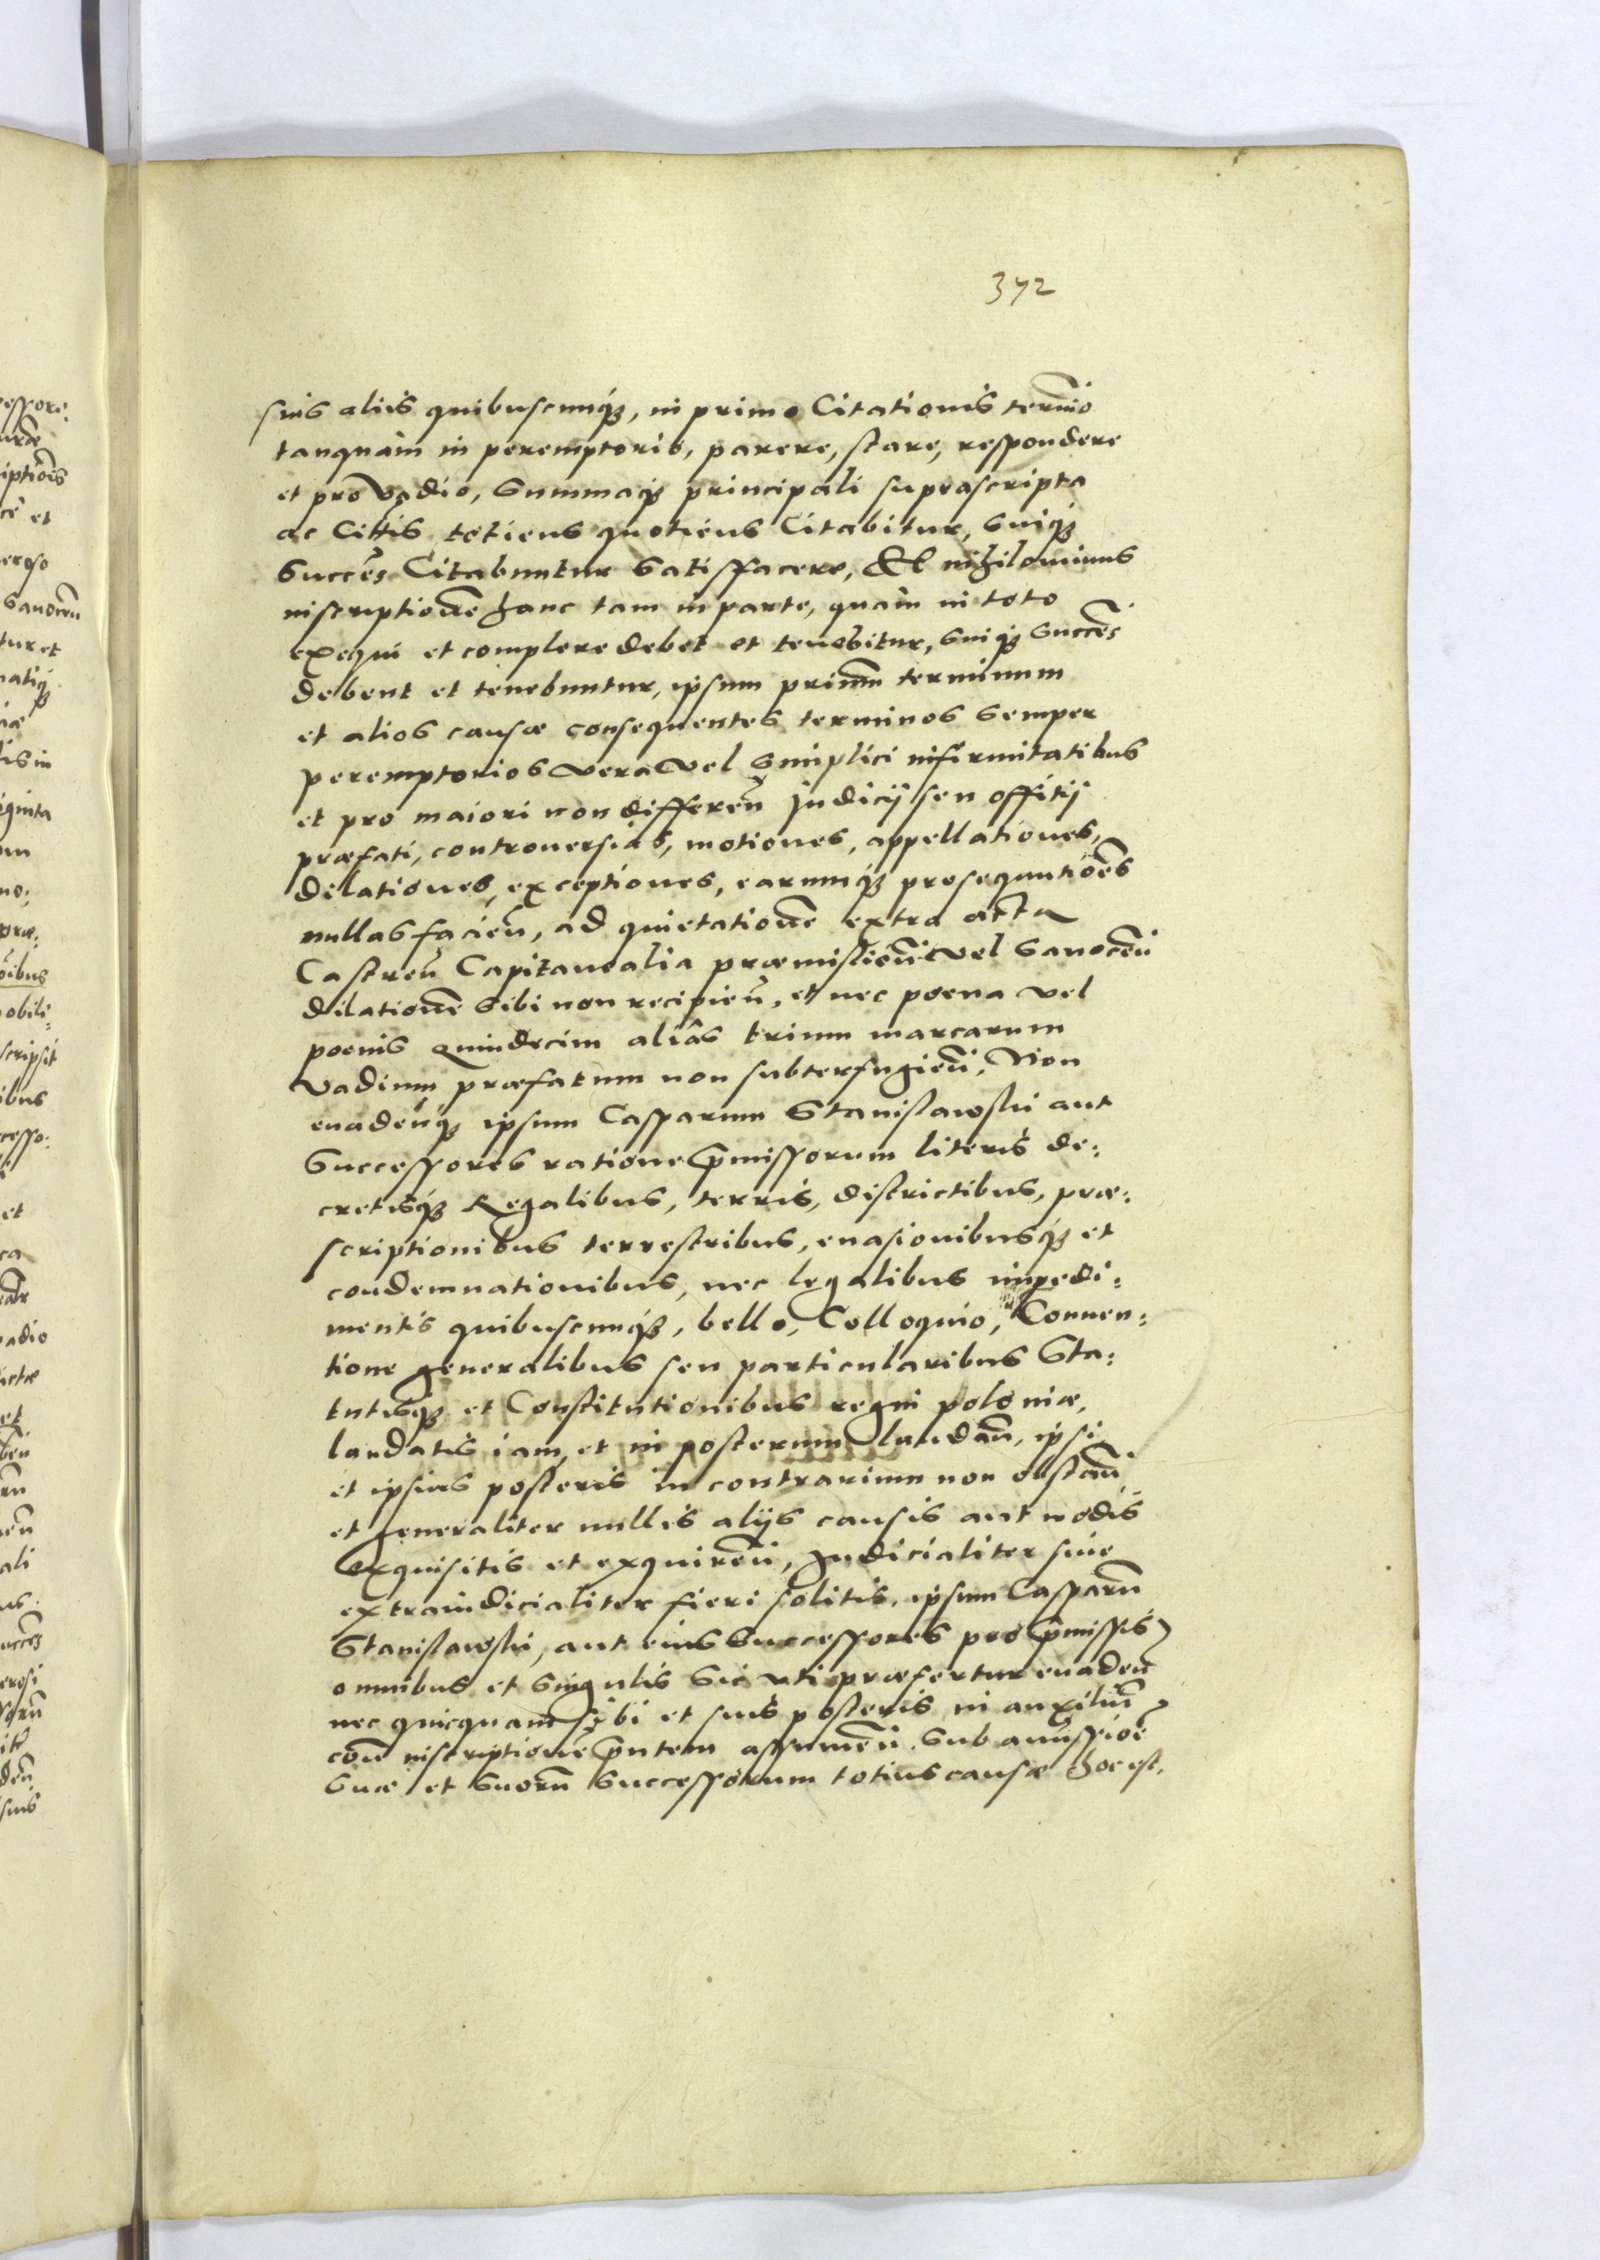 372
suis aliis quibuscunq₃, in primo Citationis termĩo
tanquam in peremptorio, parere, stare, respondere
et pro vadio, Summaq₃ principali suprascripta
ac Cittis totiens quotiens Citabitur, Suiq₃
Succẽs Citabuntur Satisfacere, Et nihilominus
inscriptionẽ hanc tam in parte, quàm in toto
exequi et complere debet et tenebitur, Suiq₃ Succẽs
debent et tenebuntur, ipsum primũm terminum
et alios causæ consequentes terminos Semper
peremptorios vera vel Simplici infirmitatibus
et pro maiori non differeñ Judicij seu offitij
præfati, controuersias, motiones, appellationes,
delationes, exceptiones, earumq₃ prosequutiões
nullas facieñ, ad quietationẽ extra acta
Castreñ Capitanealia præmislieñ vel Sanoceñ
dilationẽ Sibi non recipieñ, et nec poena vel
poenis Quindecim aliàs trium marcarum
Vadium præfatum non subterfugieñ, Non
euadeñq₃ ipsum Casparum Stanislawski aut
Successores ratione p̃missorum literis de:
cretisq₃ Regalibus, terris, districtibus, præ:
scriptionibus terrestribus, euasionibusq₃ et
condemnationibus, nec legalibus impedi:
mentis quibuscunq₃, bello, Colloquio, Conuen:
tione generalibus seu particularibus Sta:
tutisq₃ et Constitutionibus regni poloniæ,
laudatis iam, et in posterum laudañ, ipsi
et ipsius posteris in contrarium non obstañ
et generaliter nullis alijs causis aut modis
exquisitis et exquireñ, Judicialiter siue
extraiudicialiter fieri solitis, ipsum Casparũ
Stanislawski, aut eius Successores pro p̃missis
omnibus et Singulis Sic uti præfertur euadeñ
nec quicquam sibi et suis posteris in auxiliũ
coñ inscriptionẽ p̃ntem assumeñ Sub amissioẽ
Suæ et Suorũ Successorum totius causæ hoc est,